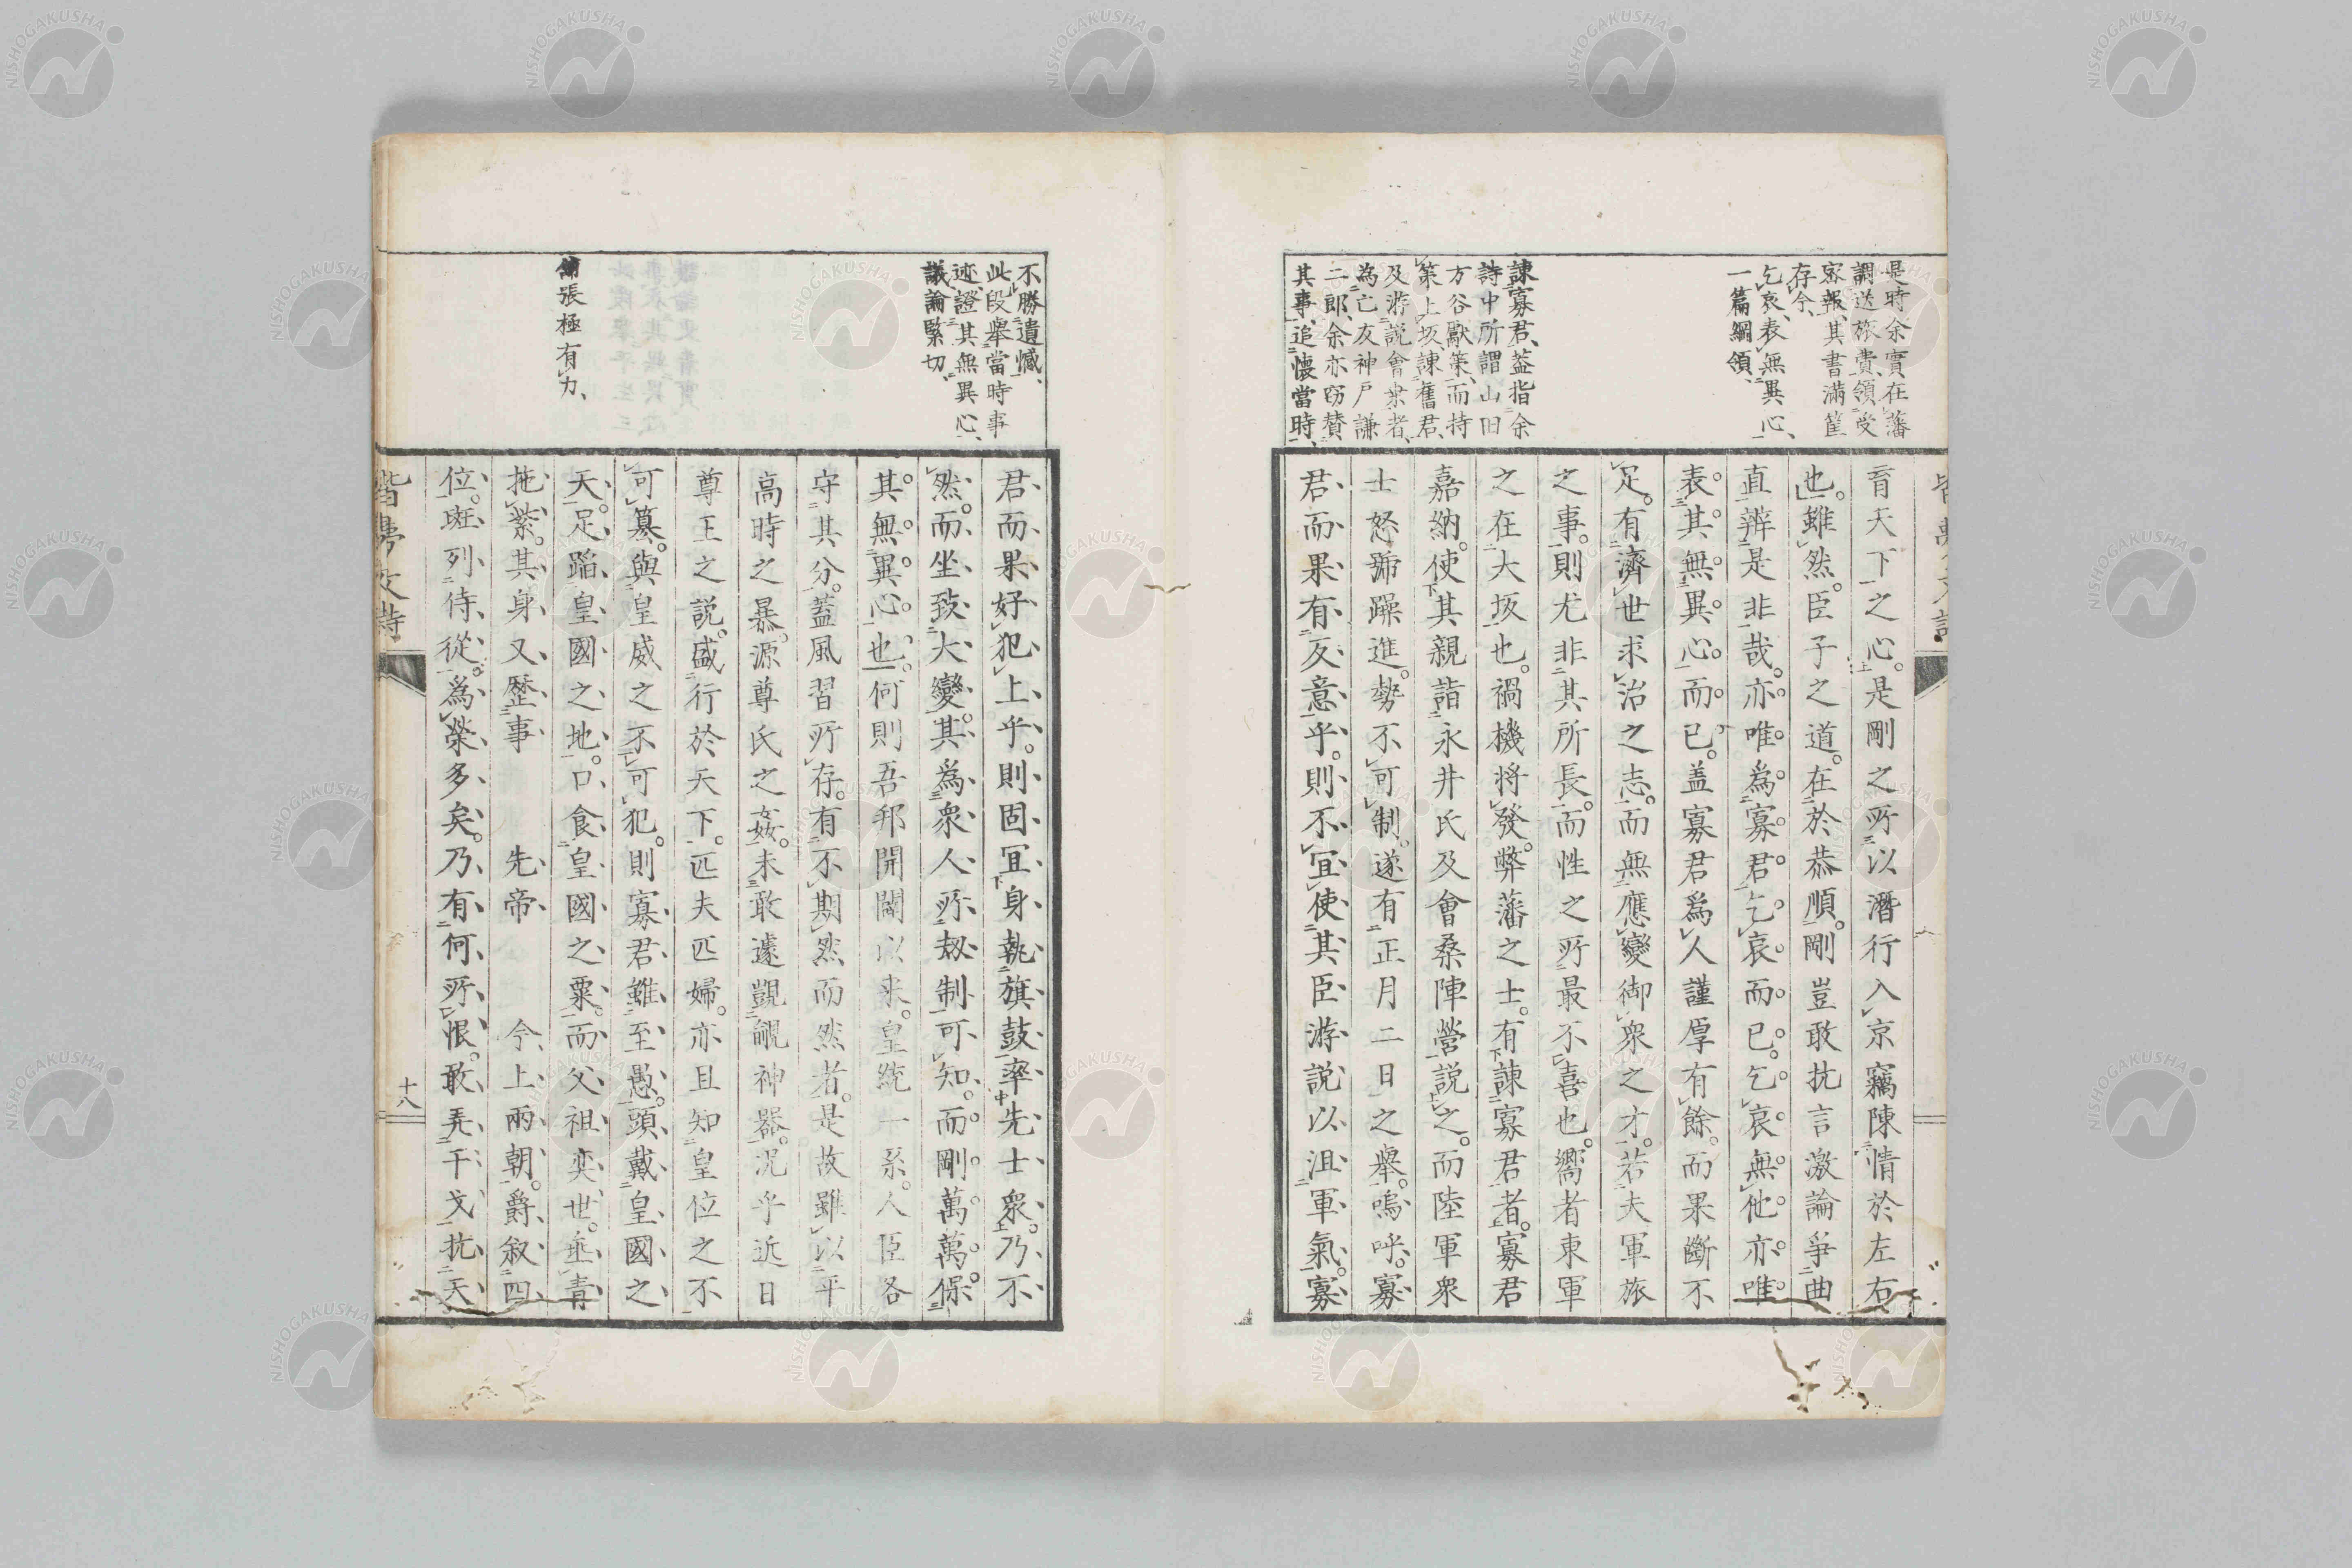 是時余實在藩
調送旅費、領受
密報、其書滿筐
存今、
乞哀表無異心、
一篇綱領、
諫寡君、蓋指余
詩中所謂山田
方谷獻策、而持
策上坂、諫舊君、
及游說會桑者、
為亡友神戶謙
二郎、余亦窃贊
其事、追懷當時、
肓天下之心。是剛之所以潛行入京竊陳情於左右
也。雖然。臣子之道。在於恭順。剛豈敢抗言激論爭曲
直辨是非哉。亦唯為寡君乞哀而已。乞哀無他。亦唯
表其無異心而已。蓋寡君為人謹厚有餘。而果斷不
足。有濟世求治之志。而無應變御眾之才。若夫軍旅
之事。則尤非其所長。而性之所最不喜也。嚮者東軍
之在大坂也。禍機將發。弊藩之士。有諫寡君者。寡君
嘉納。使其親詣永井氏及會桑陣營說之。而陸軍眾
士怒號躁進。勢不可制。遂有正月二日之舉。嗚呼。寡
君而果有反意乎。則不宜使其臣游說以沮軍氣。寡
不勝遺憾、
此段舉當時事
迹、證其無異心、
議論緊切、
舖張極有力、
君而果好犯上乎。則固宜身執旗鼓率先士眾。乃不
然。而坐致大變。其為眾人所劫制可知。而剛萬萬保
其無異心也。何則吾邦開闢以來。皇統一系。人臣各
守其分。蓋風習所存。有不期然而然者。是故雖以平
高時之暴。源尊氏之姦。未敢遽覬覦神器。況乎近日
尊王之說。盛行於天下。匹夫匹婦。亦且知皇位之不
可篡。與皇威之不可犯。則寡君雖至愚。頭戴皇國之
天。足蹈皇國之地。口食皇國之粟。而父祖奕世。垂青
拖紫。其身又歷事 先帝 今上兩朝。爵敘四
位。班列侍從。為榮多矣。乃有何所恨。敢弄干戈抗天
十八